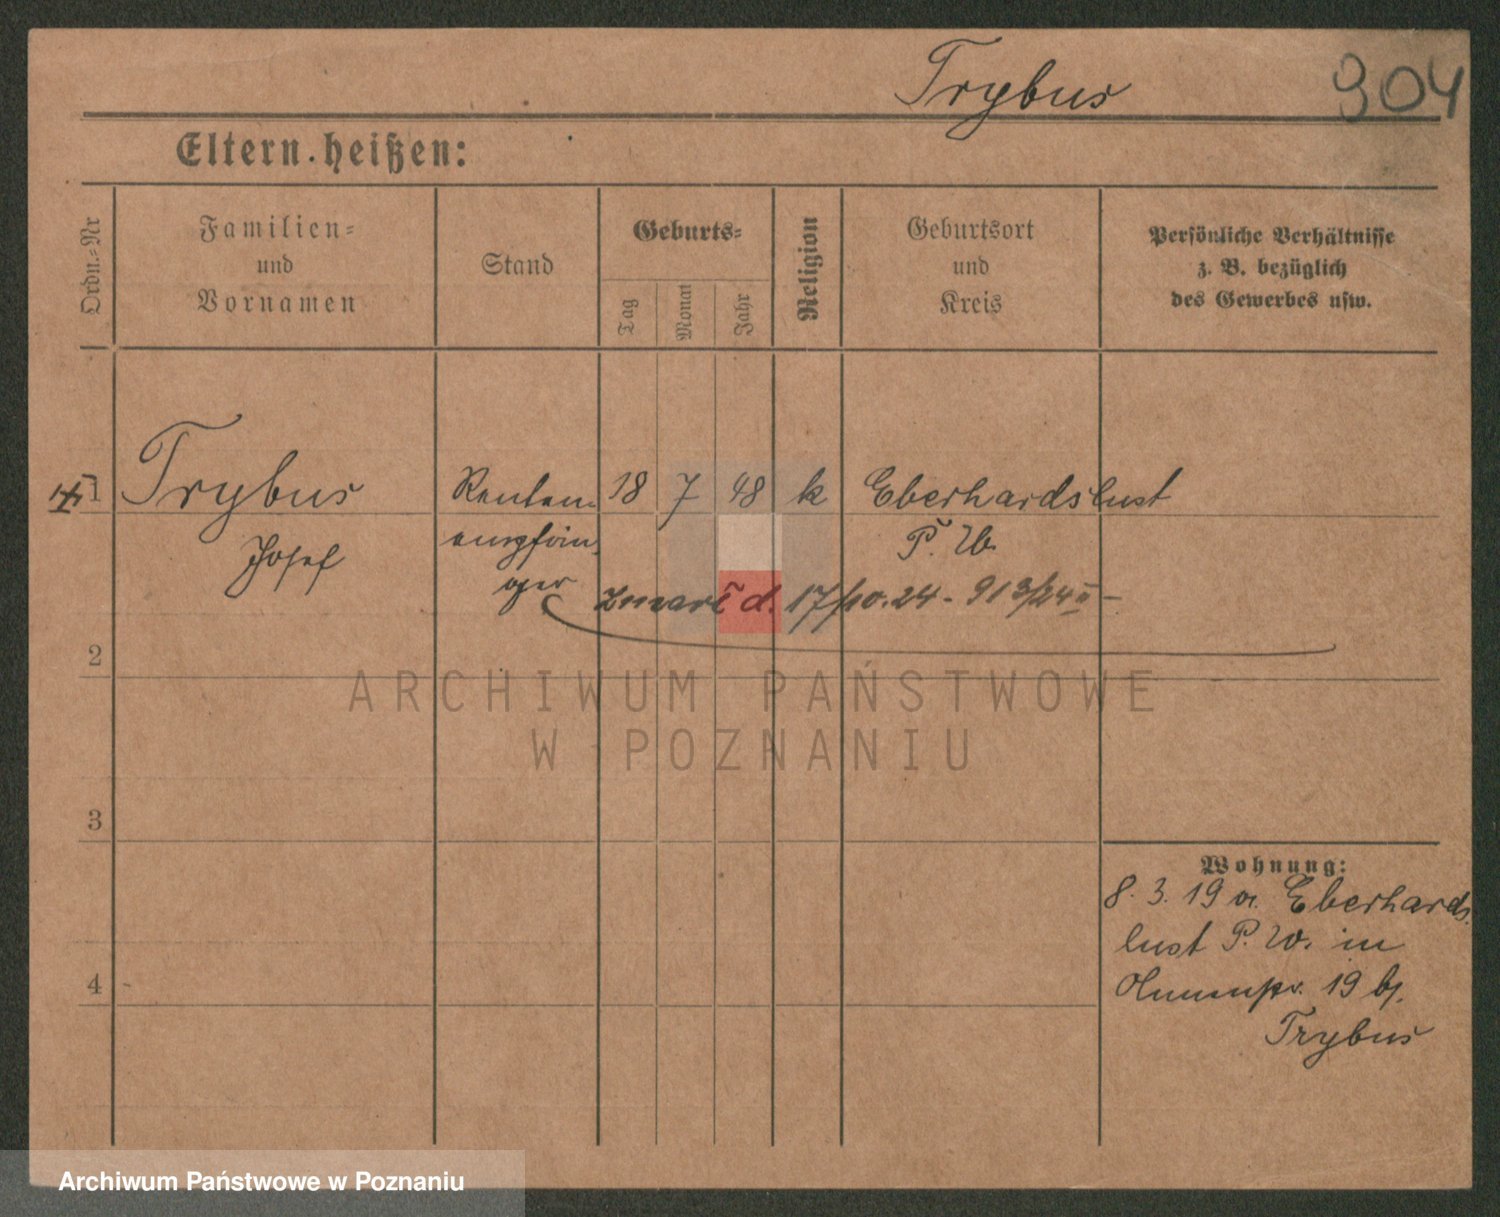 Trybus 904
Eltern heißen:
Ordn.-Nr
Familien-
und
Vornamen
Stand
Geburts-
Tag
Monat
Jahr
Religion
Geburtsort
und
Kreis
Persönliche Verhältnisse
z. B. bezüglich
des Gewerbes usw.
1 Trybus Renten- 18 7 48 k Eberhardslust
Josef empfän- P. W.
ger
Zmarł d. 17/10.24 - 913/24 II -
2
3
4
Wohnung:
8. 3. 19 a. Eberhards
lust P. W. in
19 bj.
Trybus
ARCHIWUM PAŃSTWOWE
W POZNANIU
Archiwum Państwowe w Poznaniu